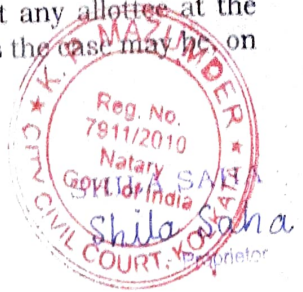 t any allottee at the
s the case may be, on
K. P. MAZUMDER
Reg. No.
7911/2010
Natary
Govt. of India
CITY CIVIL COURT, KOLKATA
SHILA SAHA
Shila Saha
Proprietor